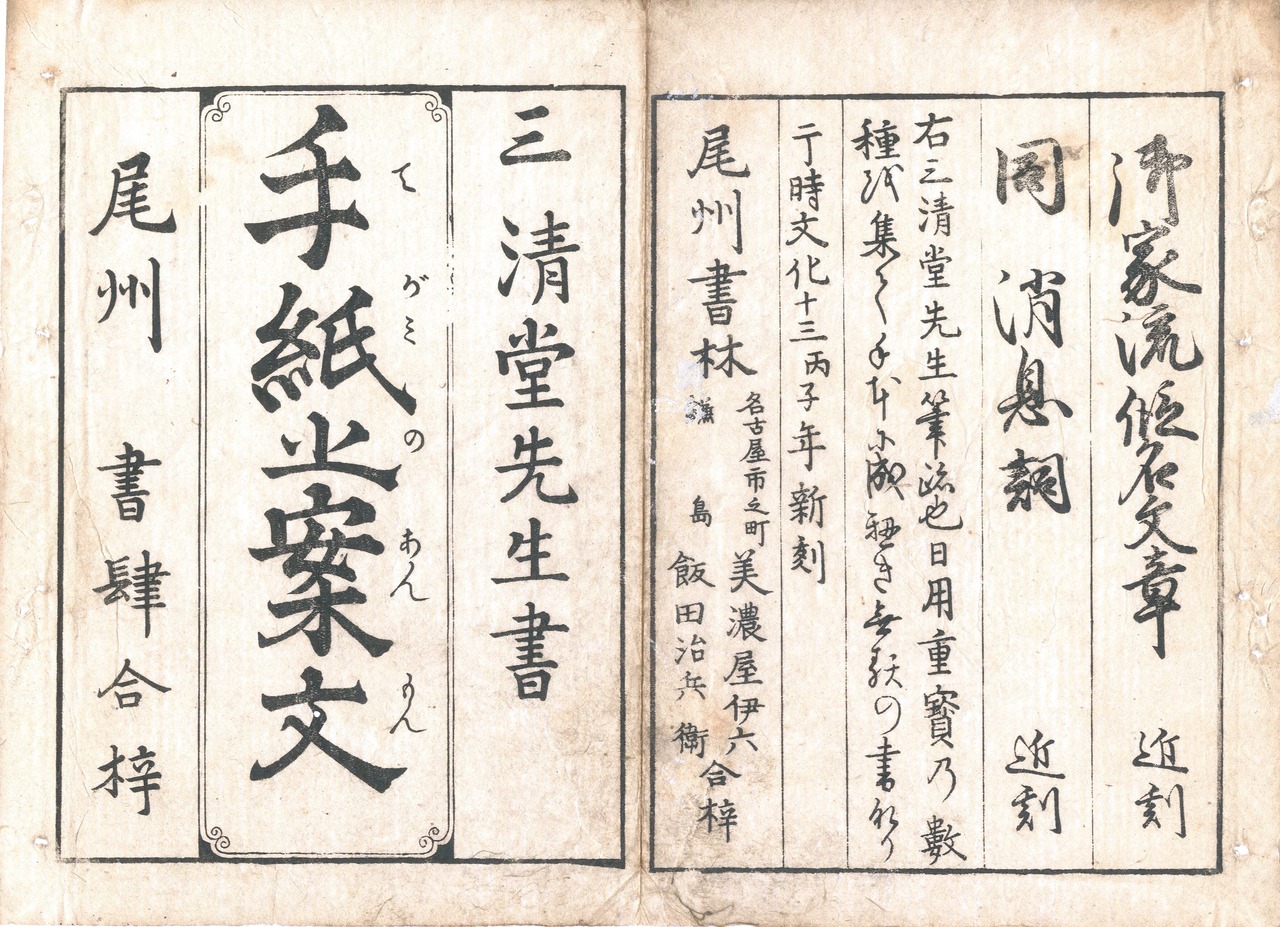 御家流假名文章 近刻
同 消息詞 近刻
右三清堂先生筆跡也日用重寶乃數
種越集く手本尓成 き無 の書なり
于時文化十三丙子年新刻
尾州書林
名古屋市之町 美濃屋伊六
島 飯田治兵衛
合梓
三清堂先生書
てがみのあんもん
手紙之案文
尾州 書肆合梓